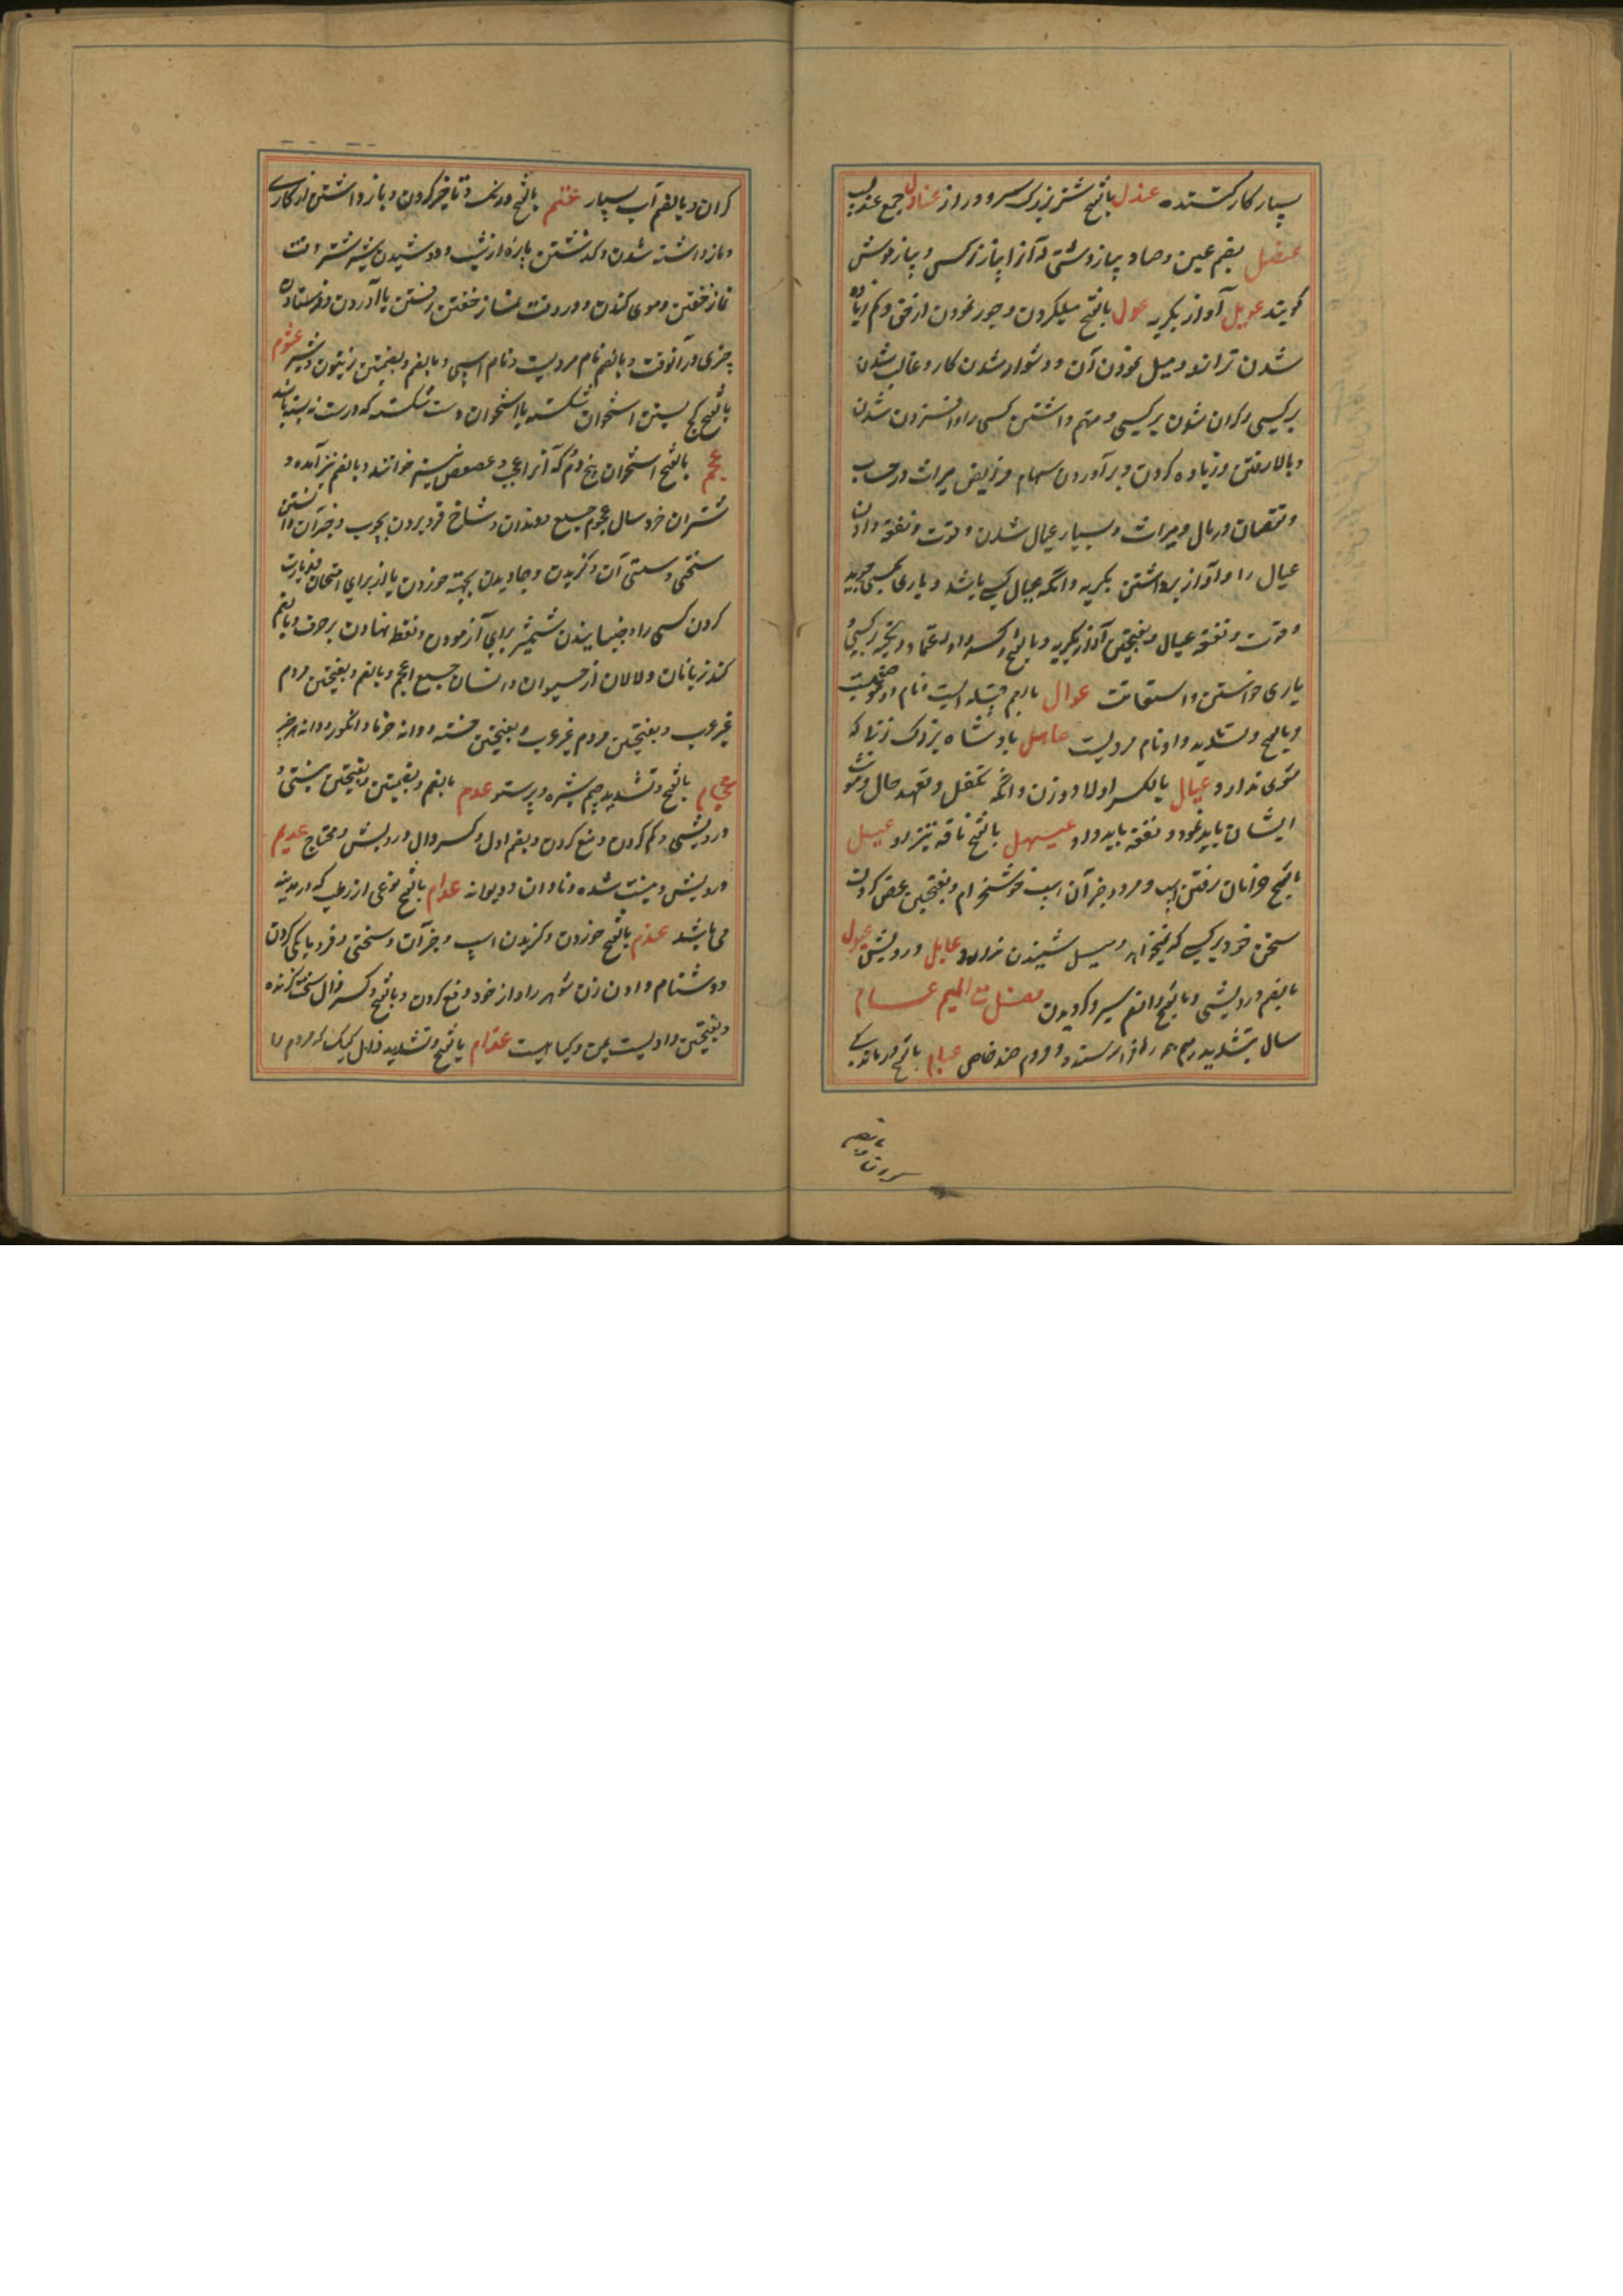 بسیار کار کننده عندل بالفتح شتر بزرگ سر و دراز عنادل جمع عندلیب
عنصل بضم عین و صاد پیاز دشتی که آنرا پیاز نرکس و پیاز موش
کویند عویل آواز بکریه عول بالفتح میل کردن و جور نمودن از حق و کم زیاده
شدن ترازو و میل نمودن آن و دشوار شدن کار و غالب شدن
بر کسی و کران شدن بر کسی و متهم داشتن کسی را و افزون شدن
و بالا رفتن و زیاده کردن و برآوردن سهام فرایض میراث در حساب
و نقصان در مال و میراث و بسیار عیال شدن و قوت و نفقه دادن
عیال را و آواز برداشتن بکریه و انکه عیال کسی باشد و یاری
و قوت و نفقه عیال و بفتحتین آواز بکریه و بالفتح و کسر واو اعتماد و تکیه بر کسی و
یاری خواستن و استعانت عوال بالضم قبیله ایست و نام دو موضعست
و بالفتح و تشدید واو نام مردیست عاهل پادشاه بزرک و زنی که
شوی ندارد و عیال بالکسر اولاد و زن و انکه تکفل و تعهد حال و مونت
ایشان باید نمود و نفقه باید داد عیهل بالفتح ناقه تیزرو عیل
بالفتح خرامان رفتن اسپ و مرد و جز آن اسپ خوشخرام و بفتحتین عرض کردن
سخن خود بر کسی که نمیخواهد و میل شنیدن ندارد و عایل درویش عیول
بالضم درویشی و بالفتح و الضم سیر و کردیدن فصل مع المیم عام
سال بتشدید میم همه را فرا رسنده و مردم ضد خاص عبام بالفتح درمانده
کران و بالضم آب بسیار عتم بالفتح درنک و تاخیر کردن و باز داشتن از کاری
و باز داشته شدن و کذشتن پاره از شب و دوشیدن شیر شتر وقت
نماز خفتن و موی کندن و در وقت نماز خفتن رفتن یا آوردن و فرستادن
چیزی در آنوقت و بالضم نام مردیست و نام اسپی و بالضم و بضمتین زیتون دشتی عثم
بالفتح کج بستن استخوان شکسته یا استخوان دست شکسته که درست نه بسته باشد
عجم بالفتح استخوان بیخ دم که آنرا عجب و عصعص نیز خوانند و بالضم نیز آمده و
شتران خرد سال عجوم جمع و دندان و شاخ فرو بردن بچوب و جز آن دانستن
سختی و سستی آن و کزیدن و جاویدن بجهة خوردن یا از برای امتحان و زیارت
کردن کسی را و جنبانیدن شمشیر برای آزمودن و نقطه نهادن بر حرف و بالضم
کند زبانان و لالان از حیوان و انسان جمع اعجم و بالضم و بفتحتین مردم
غیر عرب و بفتحتین مردم غیر عرب و بفتحتین خسته و دانه خرما و انکور و دانه هر چیز
عجام بالفتح و تشدید جیم شپره و پرستو عدم بالضم و بضمتین و بفتحتین نیستی و
درویشی و کم کردن و منع کردن و بضم اول و کسر دال درویش و محتاج عدیم
درویش و نیست شده و نادان و دیوانه عدام بالفتح نوعی از رطب که در مدینه
می باشد عذم بالفتح خوردن و کزیدن اسپ و جز آن و سختی و فریاد کردن
و دشنام دادن زن شوهر را و از خود دفع کردن و بالفتح و کسر ذال سخت کزنده
و بفتحتین وادیست بیمن و کیاهیست عذام بالفتح و تشدید ذال کیک که مردم را